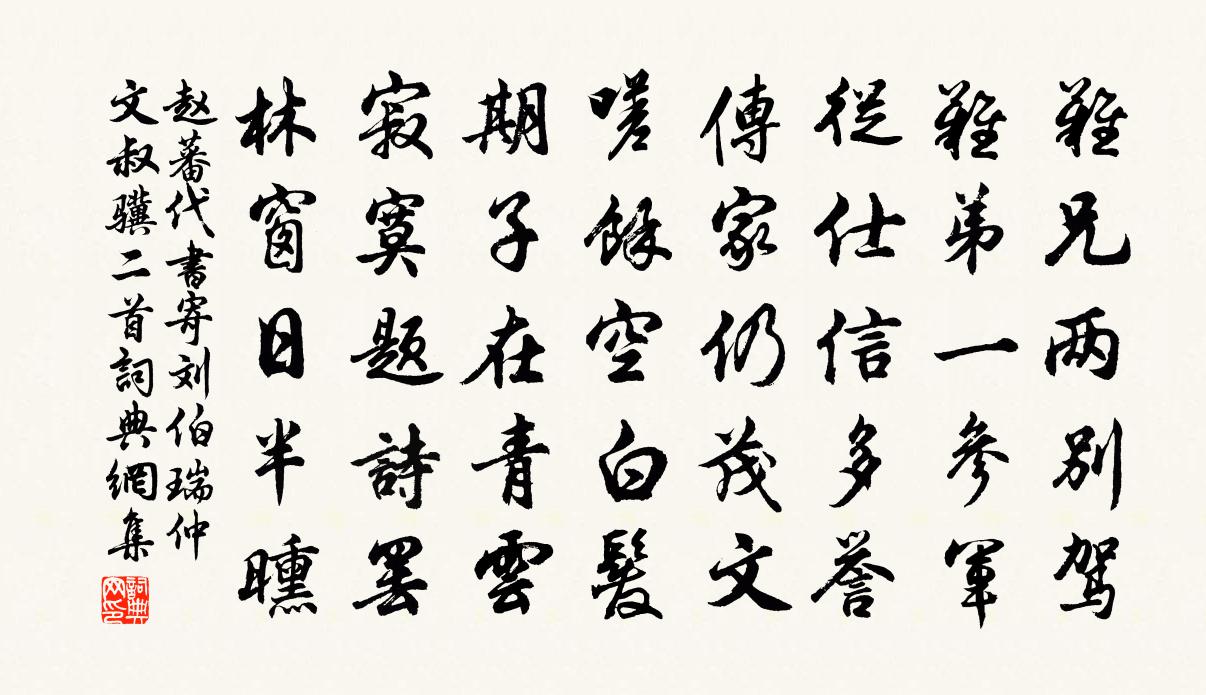 難兄两別駕
難弟一參軍
從仕信多譽
傳家仍茂文
嗟餘空白髮
期子在青雲
寂寞题詩罢
林窗日半曛
赵蕃代書寄刘伯瑞仲
文叔骥二首詞典網集
詞典网印